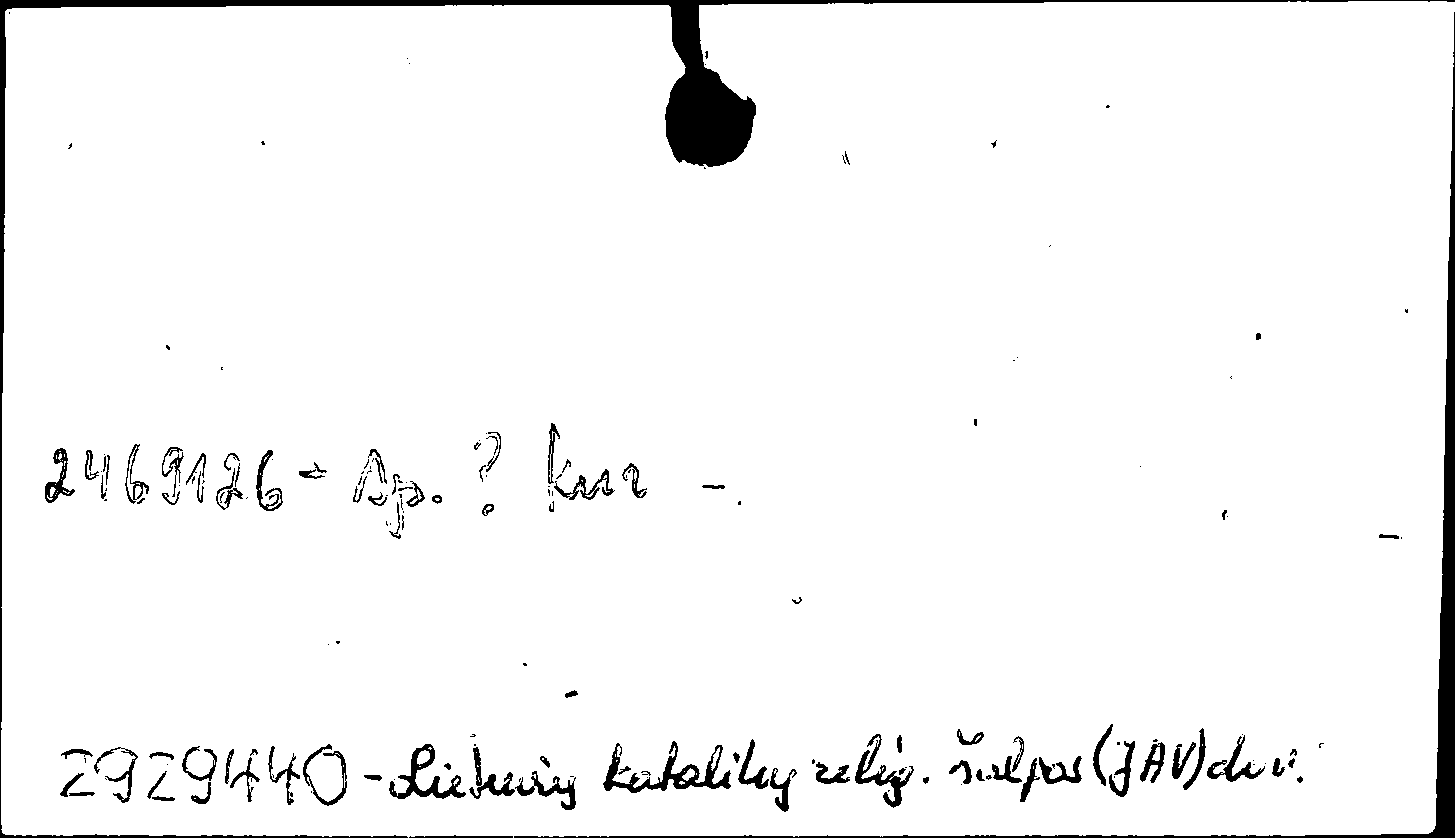 2469126 - Ap. ? kur -
2929440 - Lietuvių katalikų relig. šalpos (JAV) dov.